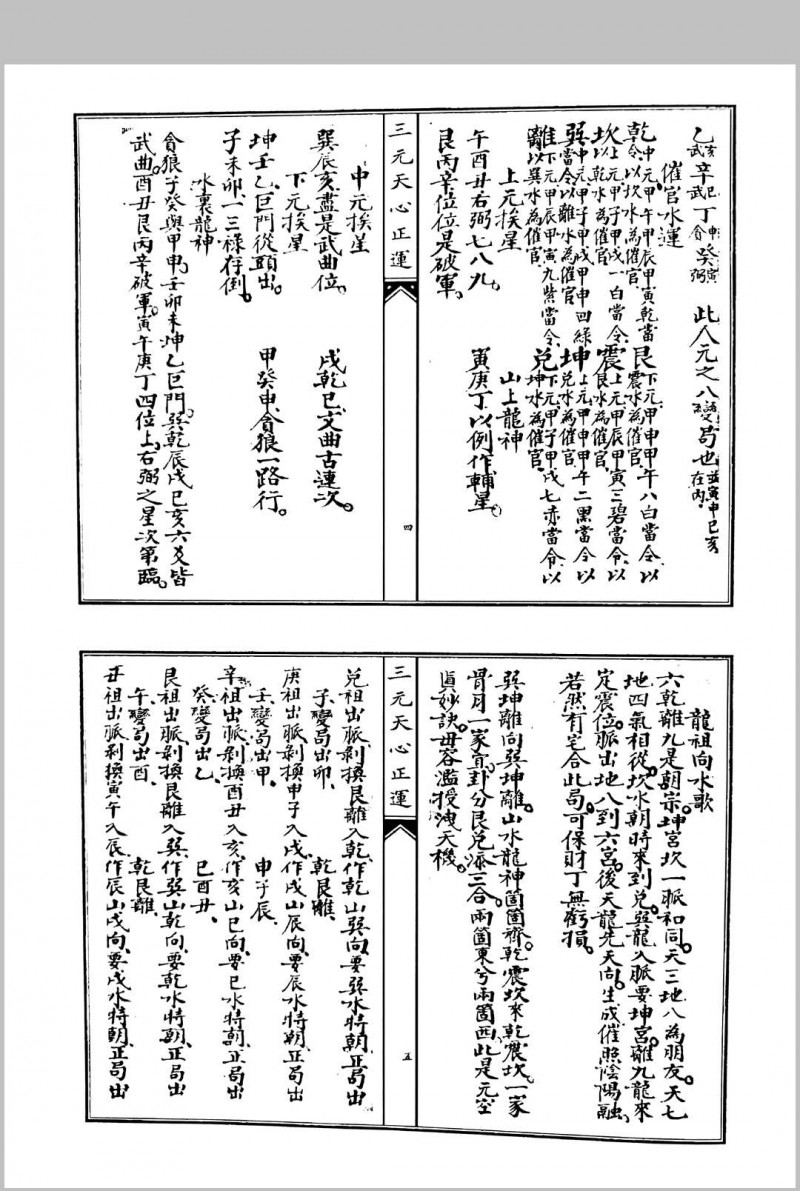 乙亥武辛巳武丁申貪癸寅弼 此人元之八變局也並寅申巳亥在內
催官水運
乾中元甲午甲辰甲寅乾當令以坎水為催官 艮下元甲申甲午八白當令以震水為催官
坎上元甲子甲戌一白當令以乾水為催官 震上元甲辰甲寅三碧當令以艮水為催官
巽中元甲子甲戌甲申四綠當令以離水為催官 坤上元甲申甲午二黑當令以兌水為催官
離下元甲辰甲寅九紫當令以巽水為催官 兌下元甲子甲戌七赤當令以坤水為催官
上元挨星 山上龍神
午酉丑右弼七八九。 寅庚丁以例作輔星。
艮丙辛位位是破軍。
三元天心正運
四
中元挨星
巽辰亥盡是武曲位。 戌乾巳文曲古連次。
下元挨星
坤壬乙巨門從頭出。 甲癸申貪狼一路行。
子未卯一三祿存倒。
水裏龍神
貪狼子癸與甲申。壬卯未坤乙巨門。巽乾辰戌巳亥六爻皆
武曲。酉丑艮丙辛破軍。寅午庚丁四位上。右弼之星次第臨。
龍祖向水歌
六乾離九是朝宗。坤宮坎一脈和同。天三地八為朋友。天七
地四氣相從。坎水朝時來到兌。巽龍入脈要坤宮。離九龍來
定震位。脈出地八到六宮。後天龍先天向。生成催照陰陽融。
若然有宅合此局。可保財丁無虧損。
巽坤離向巽坤離。山水龍神箇箇齊。乾震坎來乾震坎。一家
骨肉一家宜。卦分艮兌添三合。兩箇東兮兩箇西。此是元空
眞妙訣。毋容濫授洩天機。
三元天心正運
五
兌祖出脈、剝換艮離入乾、作乾山巽向、要巽水特朝、正局出
子、變局出卯、 乾艮離、
庚祖出脈、剝換甲子入戌、作戌山辰向、要辰水特朝、正局出
壬、變局出甲、 申子辰、
辛祖出脈、剝換酉丑入亥、作亥山巳向、要巳水特朝、正局出
癸、變局出乙、 巳酉丑、
艮祖出脈、剝換艮離入巽、作巽山乾向、要乾水特朝、正局出
午、變局出酉、 乾艮離、
丑祖出脈、剝換寅午入辰、作辰山戌向、要戌水特朝、正局出